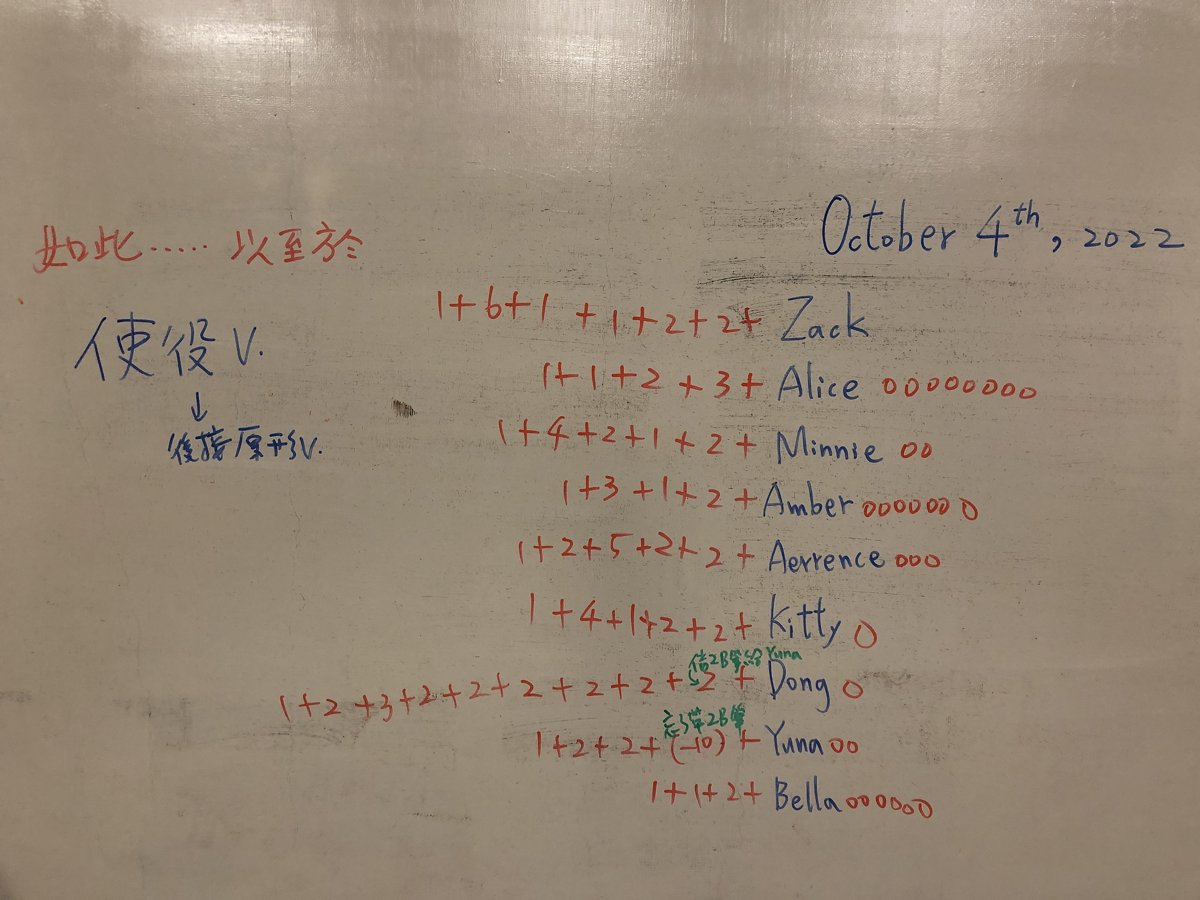 October 4th, 2022
如此……以至於
使役 V.
↓
後接原形V.
1+6+1 +1+2+2+ Zack
1+1+2+3+ Alice oooooooo
1+4+2+1+2+ Minnie oo
1+3+1+2+ Amber ooooooo
1+2+5+2+2+ Aerrence ooo
1+4+1+2+2+ Kitty o
借2B筆給Yuna
1+2+3+2+2+2+2+2+2+ Dong o
忘了帶2B筆
1+2+2+(-10)+ Yuna oo
1+1+2+ Bella oooooo